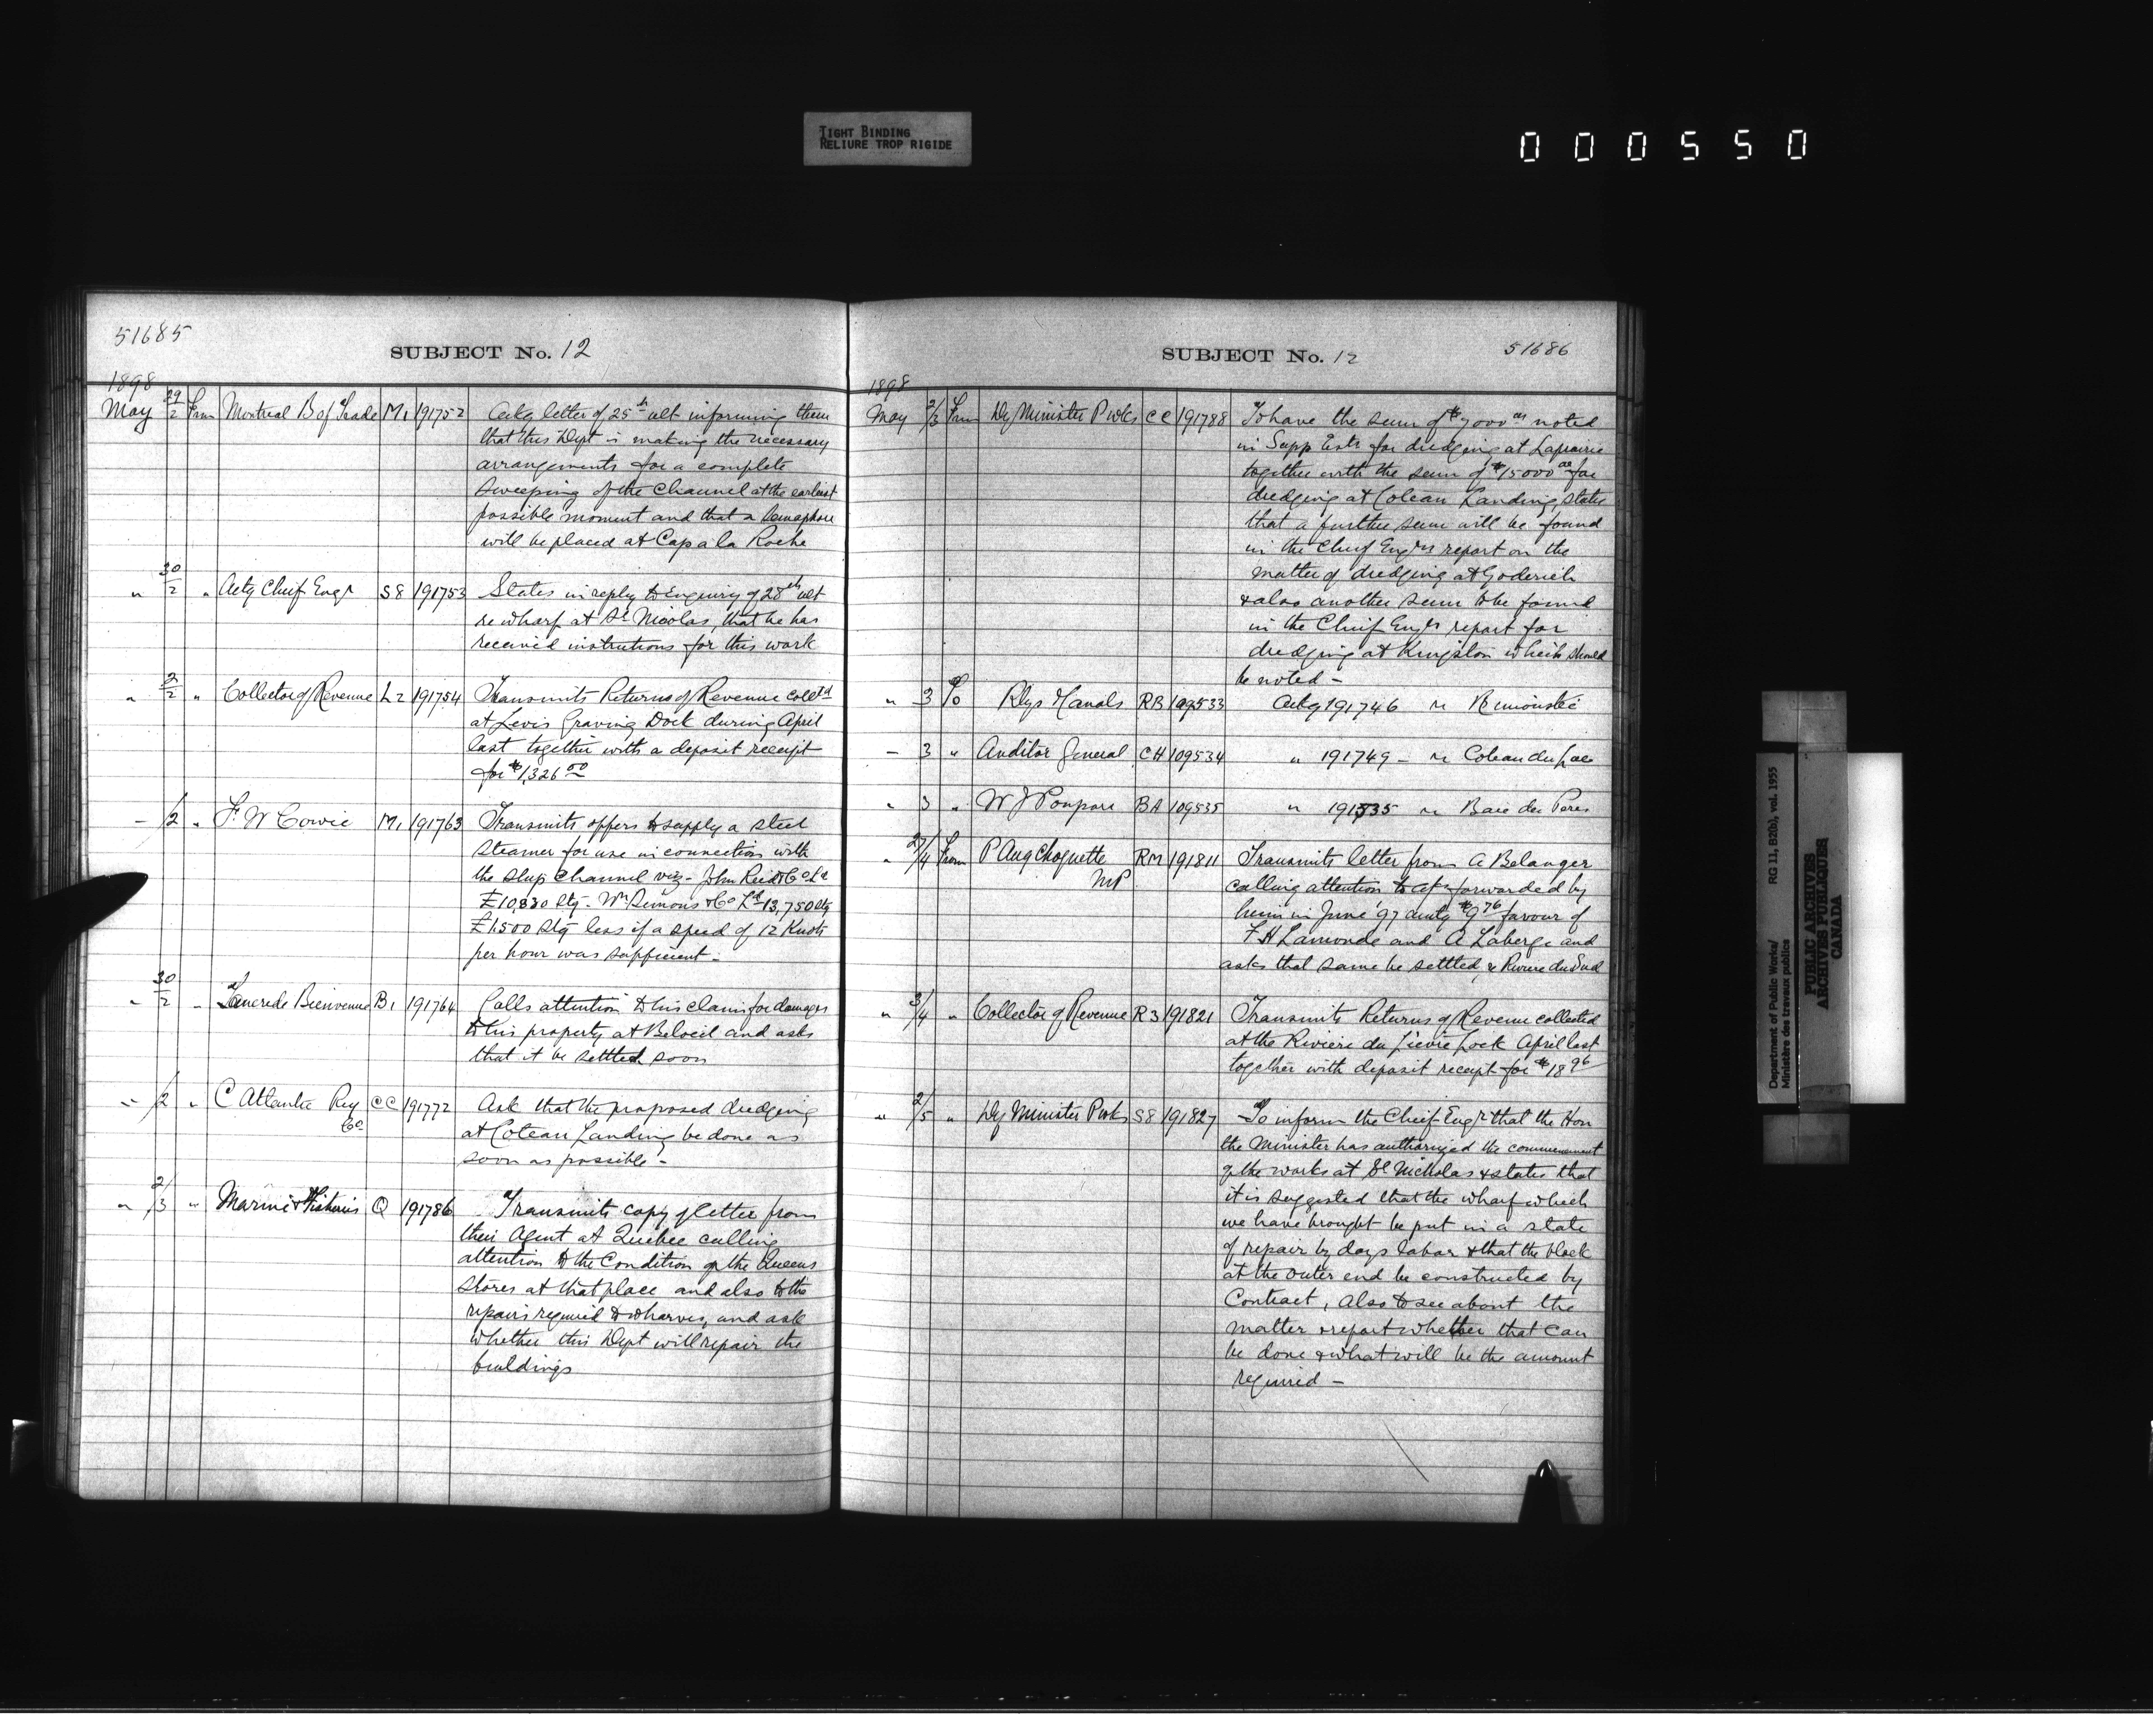 TIGHT BINDING
RELIURE TROP RIGIDE
000550
51685
SUBJECT No. 12
1898
May 29/2 From Montreal B of Trade M1 191752 Ackg letter of 25th ult informing them
that this Dept is making the necessary
arrangements for a complete
sweeping of the Channel at the earliest
possible moment and that a Semaphore
will be placed at Cap a la Roche
" 30/2 " Actg Chief Engr S8 191753 States in reply to Enquiry of 28th ult
re wharf at St Nicolas, that he has
received instructions for this work
" 2/2 " Collector of Revenue L2 191754 Transmits Returns of Revenue colltd
at Levis Graving Dock during April
last together with a deposit receipt
for $1,326 00
- /2 " F. W Cowie M1 191763 Transmits offers to supply a steel
steamer for use in connection with
the Ship Channel viz - John Reid & Co Ld
£10,830 Stg - Wm Simons & Co Ld 13,750 Stg
£1500 Stg less if a speed of 12 Knots
per hour was sufficient -
" 30/2 " Tancrede Bienvenue B1 191764 Calls attention to his claim for damages
to his property at Beloeil and asks
that it be settled soon
" /2 " C Atlantic Ry CC 191772 Ask that the proposed dredging
Co at Coteau Landing be done as
soon as possible -
" 2/3 " Marine & Fisheries Q 191786 Transmits copy of letter from
their Agent at Quebec calling
attention to the Condition of the Queens
Stores at that place and also to the
repairs required to wharves, and ask
whether this Dept will repair the
buildings
SUBJECT No. 12
51686
1898
May 2/3 From Dy Minister P wks CC 191788 To have the sum of $7000 00 noted
in Supp Ests for dredging at Laprairie
together with the sum of $15000 00 for
dredging at Coteau Landing, states
that a further sum will be found
in the Chief Engrs report on the
matter of dredging at Goderich
& also another sum to be found
in the Chief Engrs report for
dredging at Kingston which should
be noted -
" 3 To Rlys & Canals RB 109533 Ackg 191746 re Rimouski
- 3 " Auditor General CH 109534 " 191749 - re Coteau du Lac
" 3 " W J Poupore BA 109535 " 191735 re Baie des Peres
" 2/4 From P Aug Choquette RM 191811 Transmits letter from A Belanger
MP calling attention to a/cs forwarded by
him in June '97 amtg $9 76 favour of
F H Lamonde and A Laberge and
asks that same be settled re Riviere du Sud
" 3/4 " Collector of Revenue R3 191821 Transmits Returns of Revenue collected
at the Riviere du Lievre Lock April last
together with deposit receipt for $18 96
" 2/5 " Dy Minister P wks S8 191827 To inform the Chief Engr that the Hon
the Minister has authorized the commencement
of the works at St Nicholas & states that
it is suggested that the wharf which
we have brought be put in a state
of repair by days labor & that the block
at the outer end be constructed by
Contract, also to see about the
matter & report whether that can
be done & what will be the amount
required -
Department of Public Works/ RG 11, B2(b), vol. 1955
Ministère des travaux publics
PUBLIC ARCHIVES
ARCHIVES PUBLIQUES
CANADA